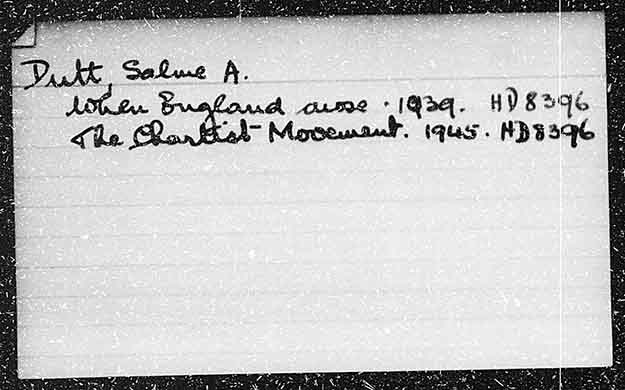 Dutt, Salme A.
When England arose. 1939. HD8396
The Chartist Movement. 1945. HD8396